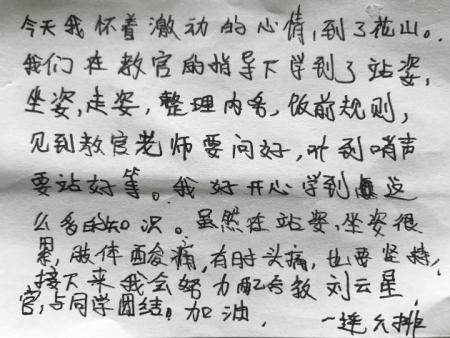 今天我怀着激动的心情,到了花山。
我们在教官的指导下学到了站姿,
坐姿,走姿,整理内务,饭前规则,
见到教官老师要问好,听到哨声
要站好等。我好开心学到这
么多的知识。虽然在站姿,坐姿很
累,肢体酸痛,有时头痛,也要坚持,
接下来我会努力配合教刘云星
官,与同学团结。加油,
~连六排